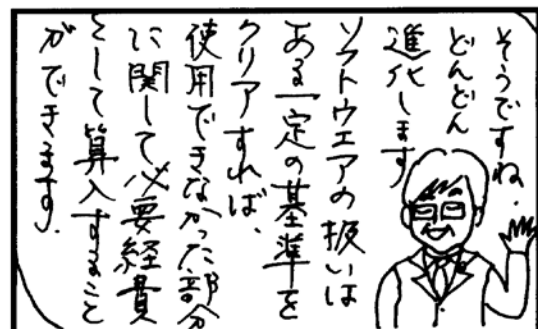 そうですね.
どんどん
進化します
ソフトウエアの扱いは
ある一定の基準を
クリアすれば、
使用できなかった部分
に関して必要経費
として算入すること
ができます.